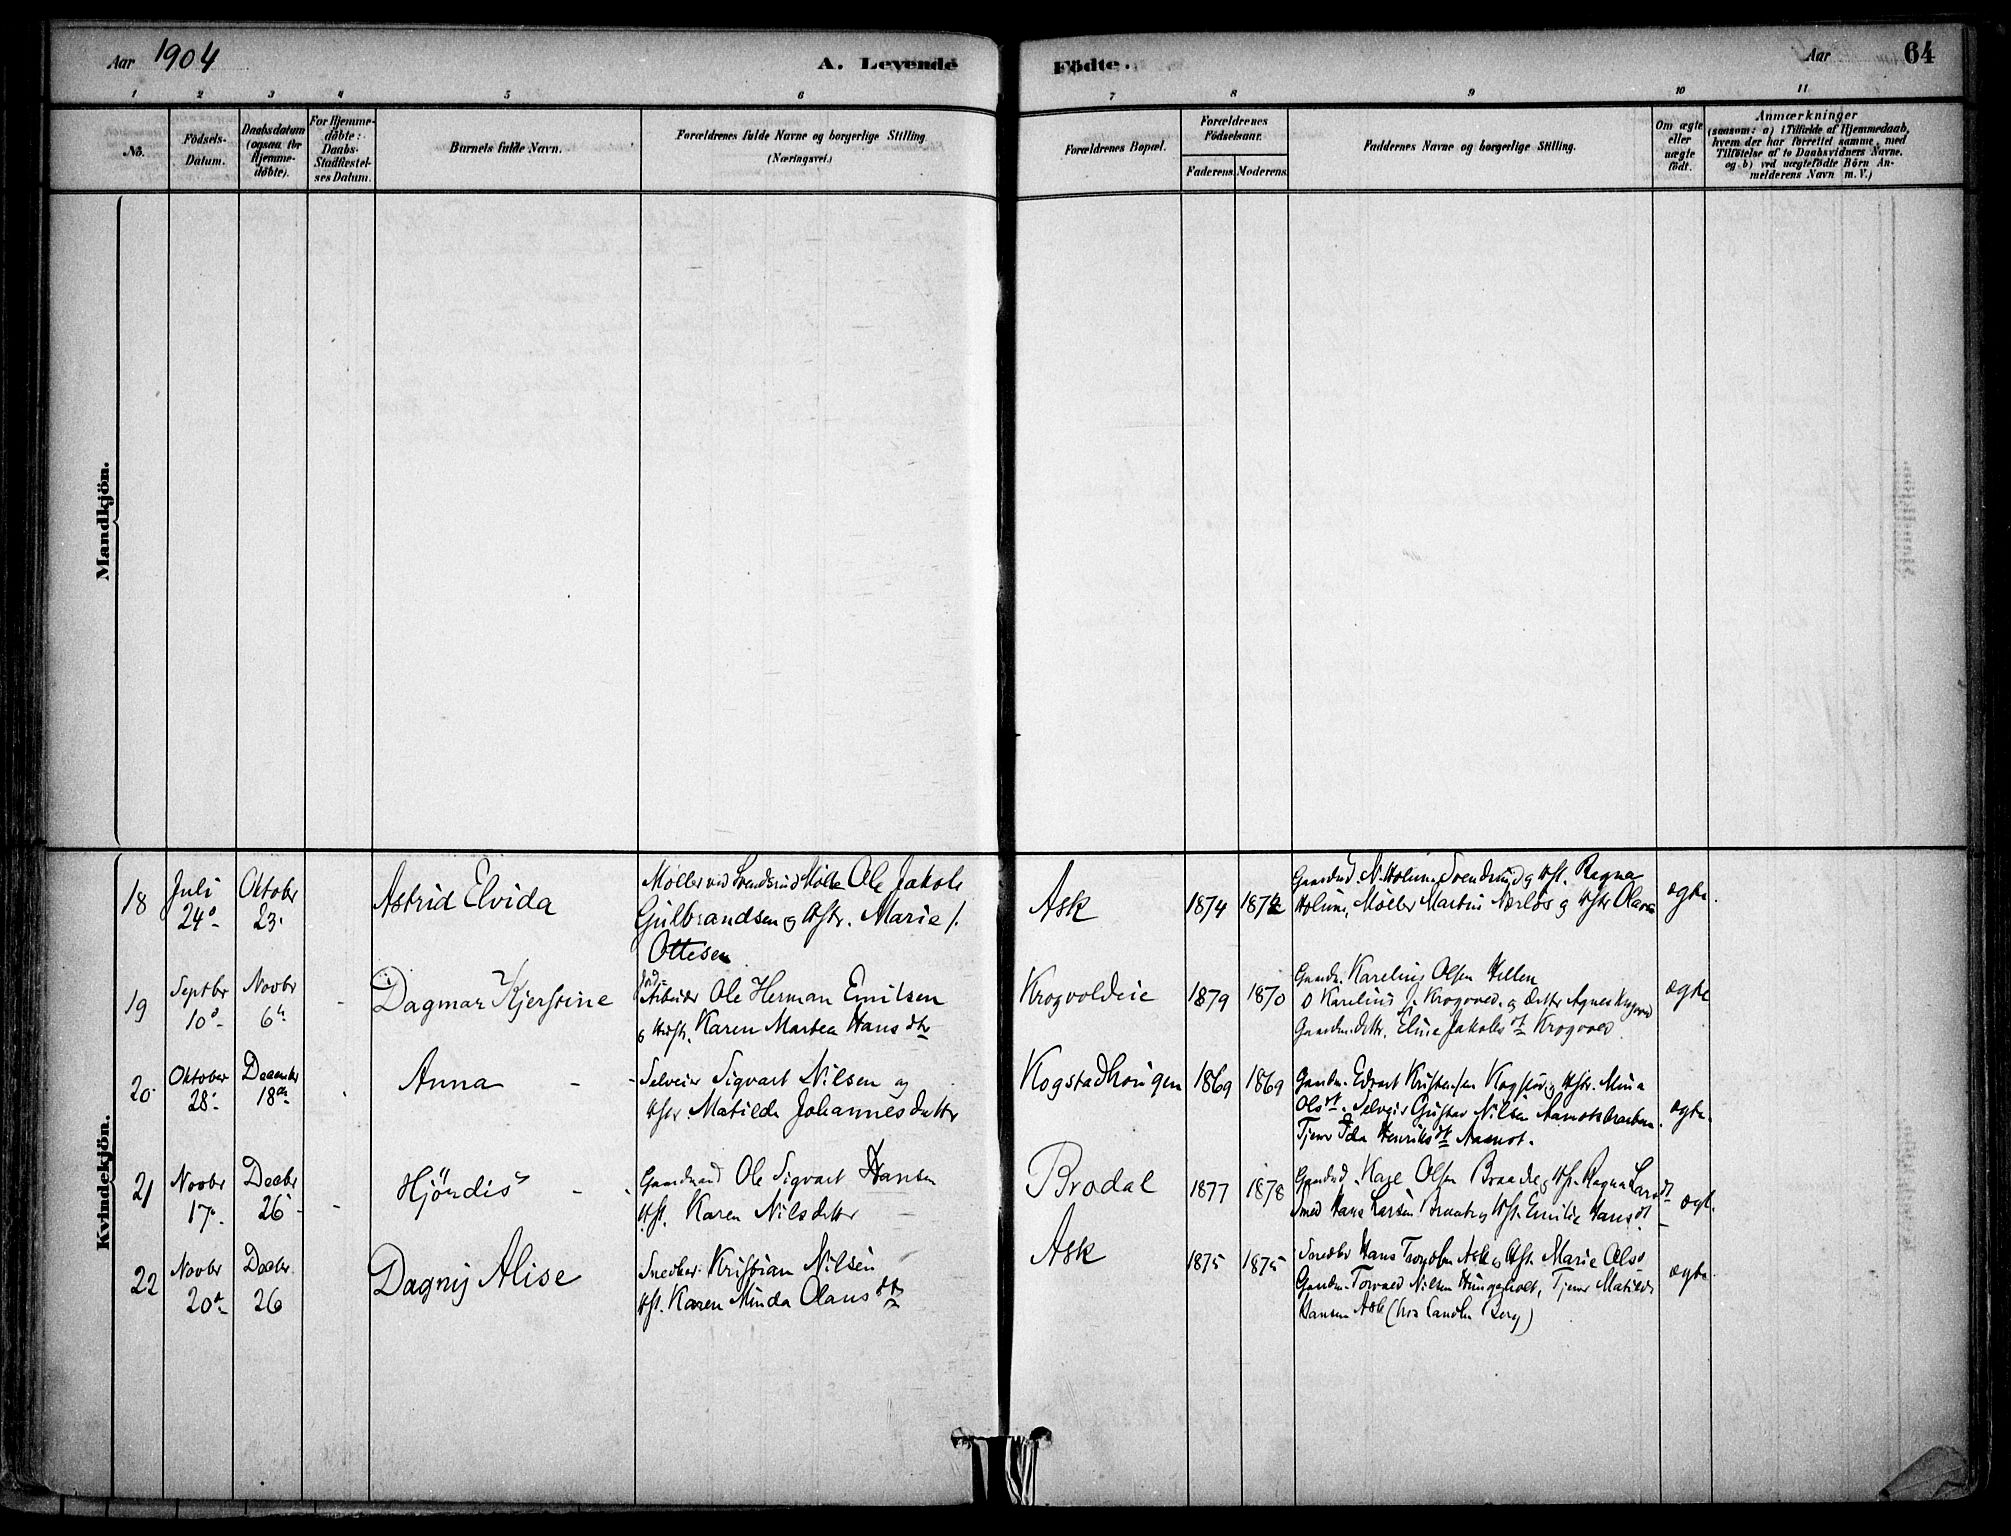 Aar 1904 A. Levende Fødte. Aar 64
1 2 3 4 5 6 7 8 9 10 11
No.
Födsels-Datum.
Daabsdatum (ogsaa for Hjemme-döbte).
For Hjemme-döbte: Daabs-Stadfæstel-ses Datum.
Barnets fulde Navn.
Forældrenes fulde Navne og borgerlige Stilling.
(Næringsvei.)
Forældrenes Bopæl.
Forældrenes Födselsaar.
Faderens. Moderens.
Faddernes Navne og borgerlige Stilling.
Om ægte eller uægte födt.
Anmærkninger
(saasom: a) i Tilfælde af Hjemmedaab,
hvem der har forrettet samme, med
Tilföielse af to Daabsvidners Navne.
og b) ved uægtefödte Börn An-
melderens Navn m. V.)
Mandkjön.
Kvindekjön.
18 Juli 24 Oktober 23. Astrid Elvida
Møller ved Svendsrud Mølle Ole Jakob
Gulbrandsen og Hstr. Marie
Ottesen
Ask 1874
Gaardmd. N. Holum, Svendsrud og Hst. Ragna
Holum, Møller Martin Nærløs og Hstr Olava
ægte.
19 Septbr 10 Novbr 6 Dagmar Kjerstine
Arbeider Ole Herman Emilsen
og Hstr. Karen Martea Hansdtr
Krogvoldeie 1879 1870
Gaardm. Karelius Olsen Hellen
Gaardm. dttr. Eline Jakobsdt Krogvold
ægte
20. Oktober 28. December 18 Anna
Selveier Sigvart Nilsen og
Hstr. Matilde Johannesdatter
Kogstadhougen 1869 1869
Gaardm. Edvart Kristensen Kogstad og Hstr. Mina
Olsdt. Selveier Gustav Nilsen
Tjener Ida Henriksdt Aamot.
ægte.
21 Novbr 17. Decbr 26 Hjördis
Gaardmand Ole Sigvart Hansen
Hst. Karen Nilsdatter
Brodal 1877 1878
Gaardmd. Olsen Hst. Ragna Larsdt
Smed Hans Larsen Hst. Emilie Hansdt
ægt.
22 Novbr 20 Decbr. 26 Dagny Alise
Snedker Kristian Nilsen
Hst. Karen Minda Olausdtr
Ask 1875 1875
Snedkr Hans Ask og Hst. Marie Olsd
Gaardm. Torvald Nilsen, Tjener Matilde
Hansen Ask (hos Berg)
ægte.